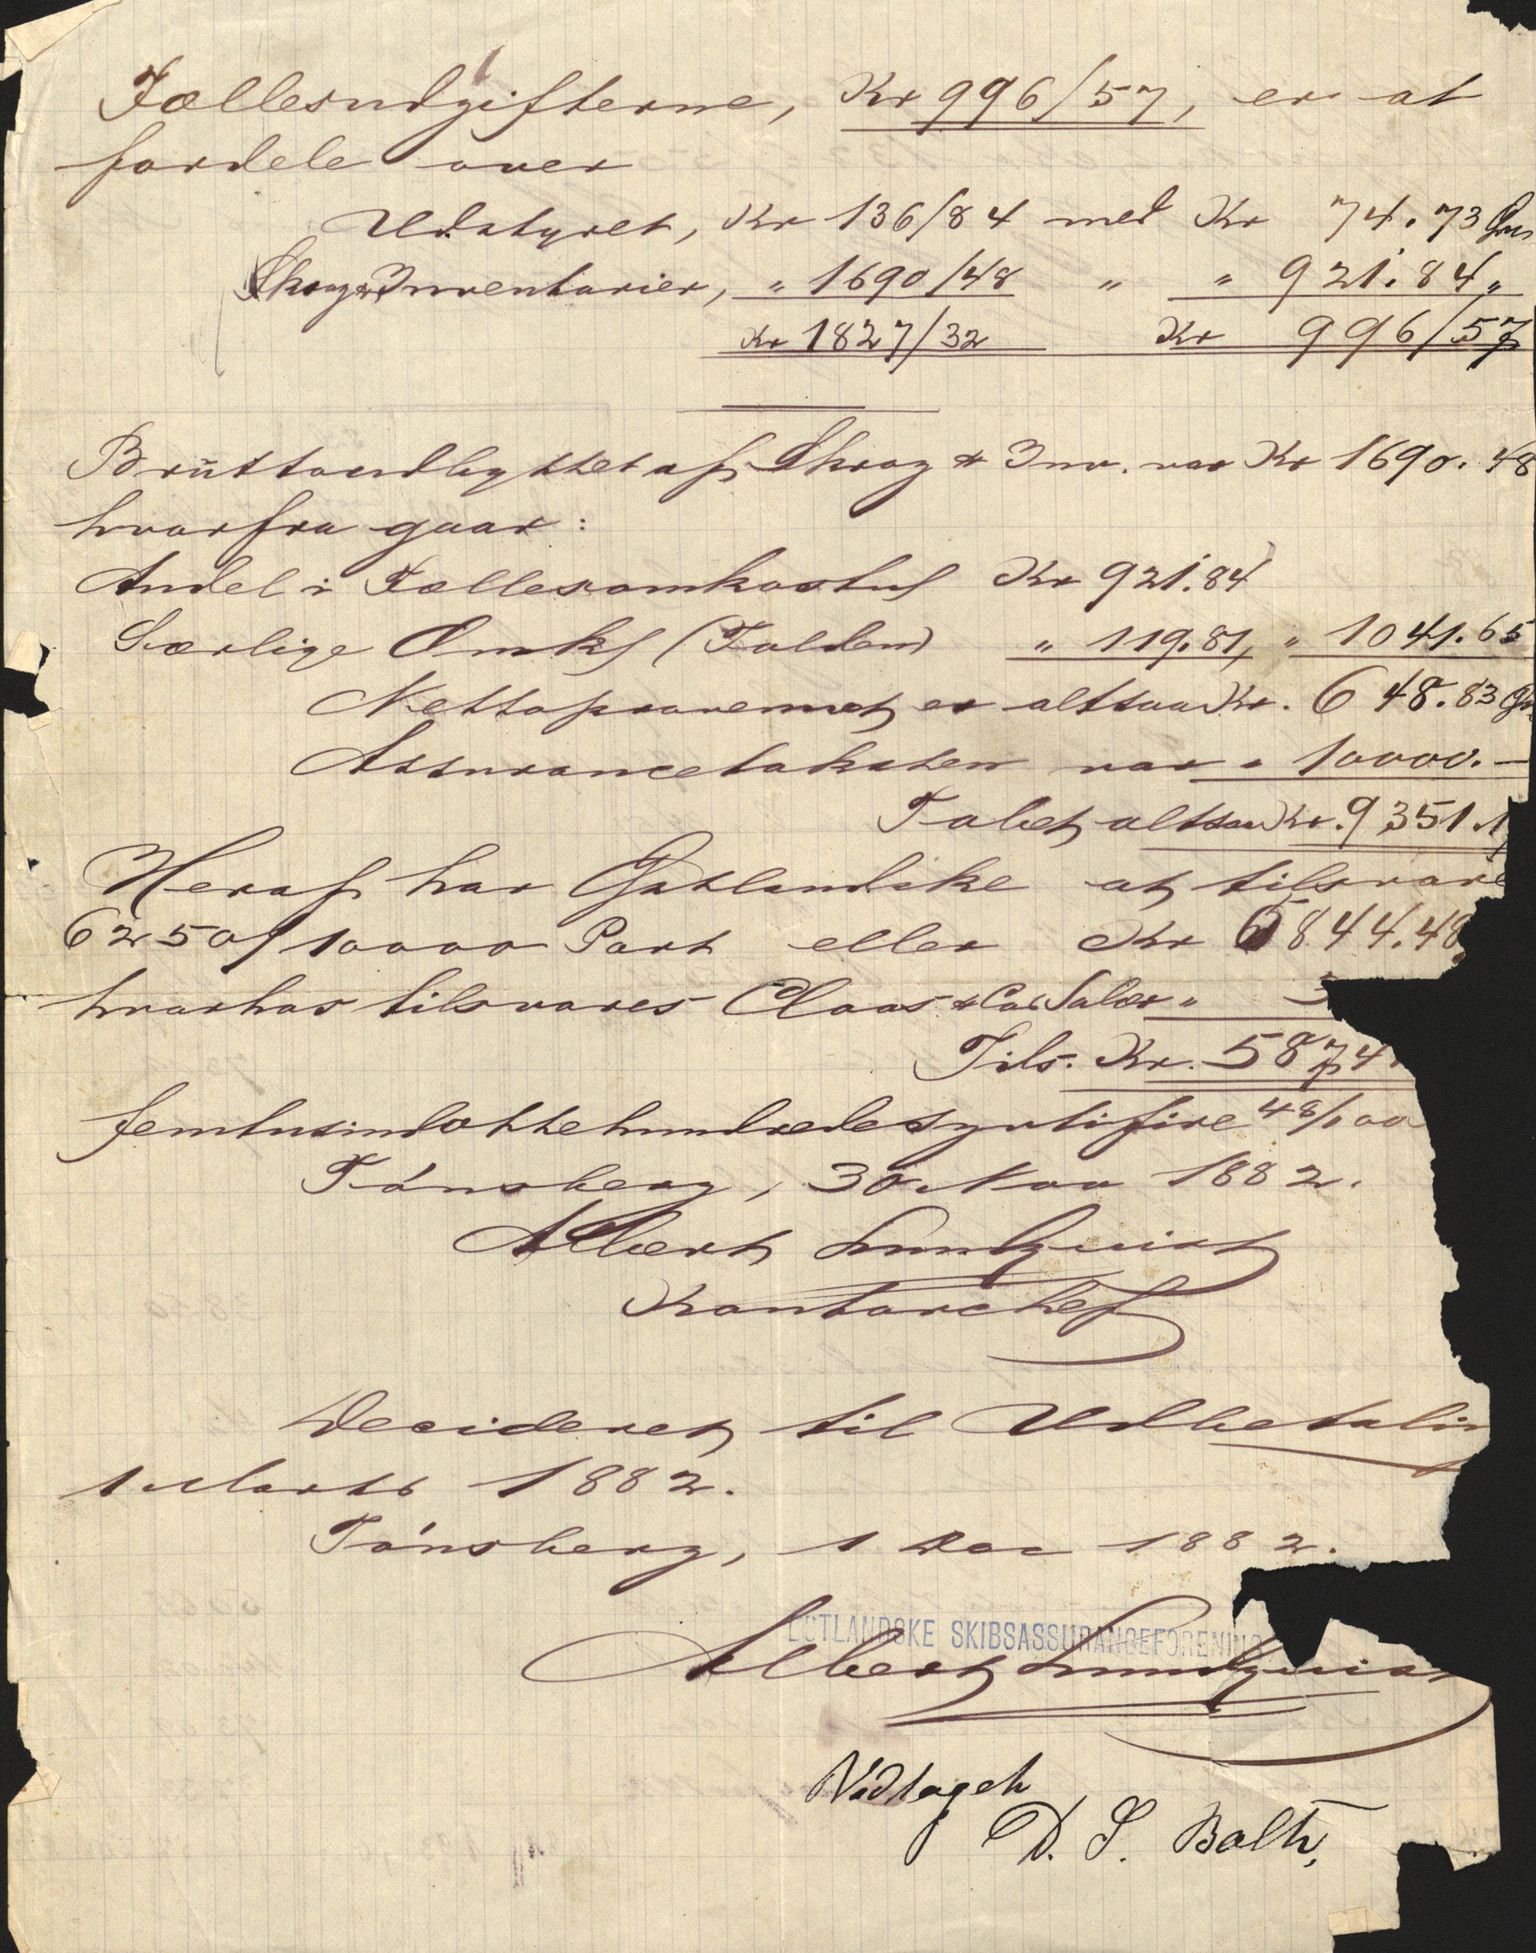 Fællesudgifterne, Kr 996/57, er at
fordele over
Udstyret, Kr 136/84 med Kr 74.73
Skrog & Inventarier, " 1690/48 " " 921.84 "
Kr 1827/32 Kr 996/57
Bruttoudbyttet af Skrog & Inv. var Kr 1690.48
hvorfra gaar:
Andel i Fællesomkostn Kr 921.84
Særlige Omk (Tolden) " 119.81, " 1041.65
Nettoprovenuet er altsaa Kr. 648.83
Assurancetaksten var " 10000.—
Tabet altsaa Kr. 9351.1
Heraf har Østlandske at tilsvare
6250/10000 Part eller Kr 5844.48
hvorhos tilsvares Claas & Co's Salær "
Tils. Kr. 5874
femtusindottehundredesyttifire 48/100
Tönsberg, 30 Nov 1882.
Albert Lundquist
Kontorchef
Decideret til Udbetalin
1 Marts 1882.
Tönsberg, 1 Dec 1882.
ØSTLANDSKE SKIBSASSURANCEFORENING
Albert Lundquist
Vidtaget
D. S. Balti,